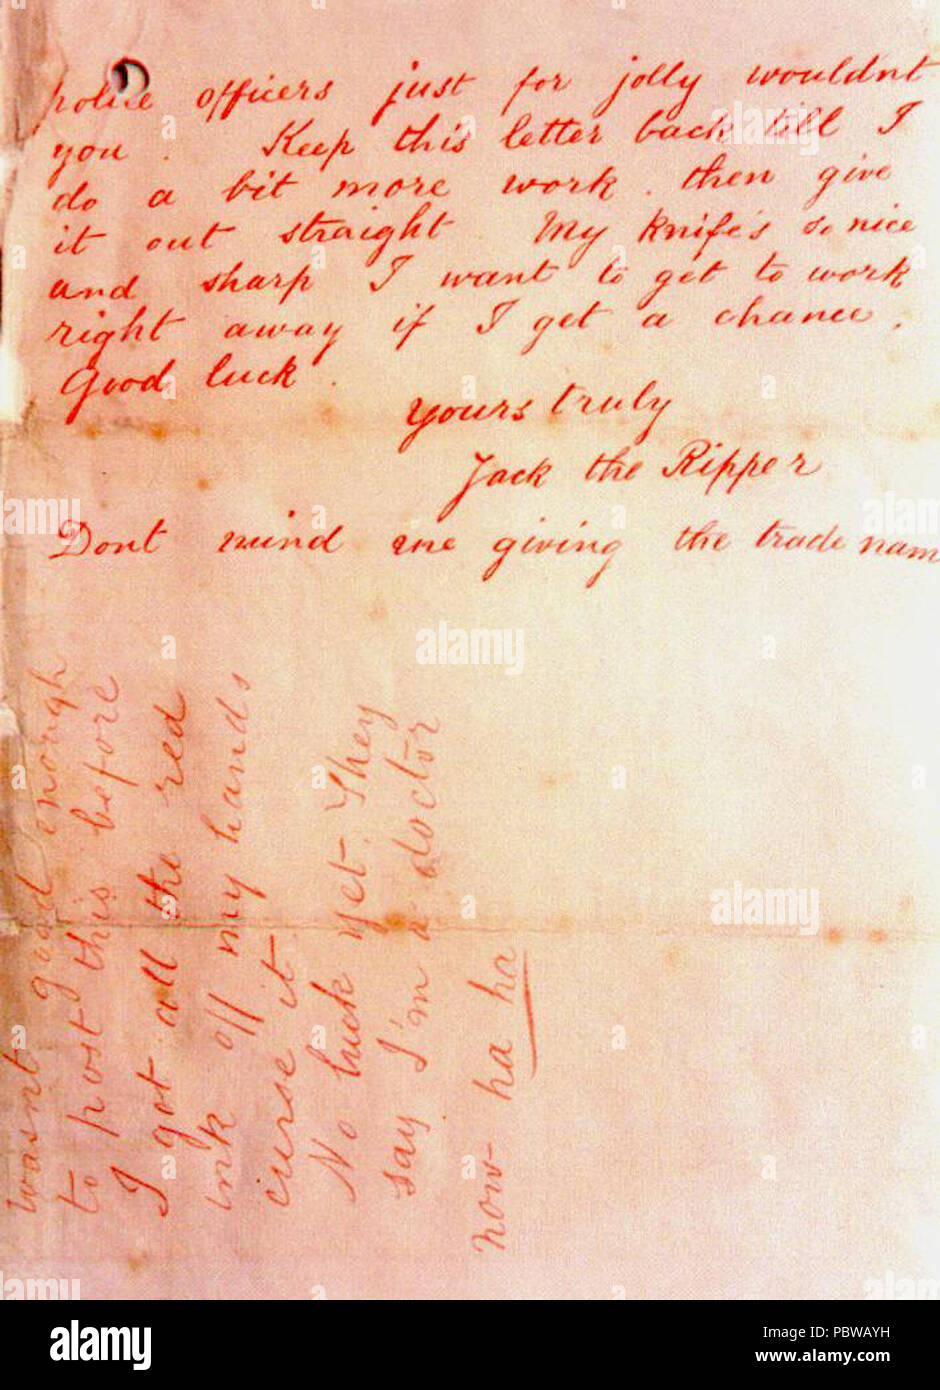 police officers just for jolly wouldnt
you. Keep this letter back till I
do a bit more work. then give
it out straight. My knife's so nice
and sharp I want to get to work
right away if I get a chance.
Good luck.
yours truly
Jack the Ripper
Dont mind me giving the trade nam
wasnt good enough
to post this before
I got all the red
ink off my hands
curse it
No luck yet. They
say I'm a doctor
now ha ha
alamy
alamy
Image ID: PBWAYH
www.alamy.com